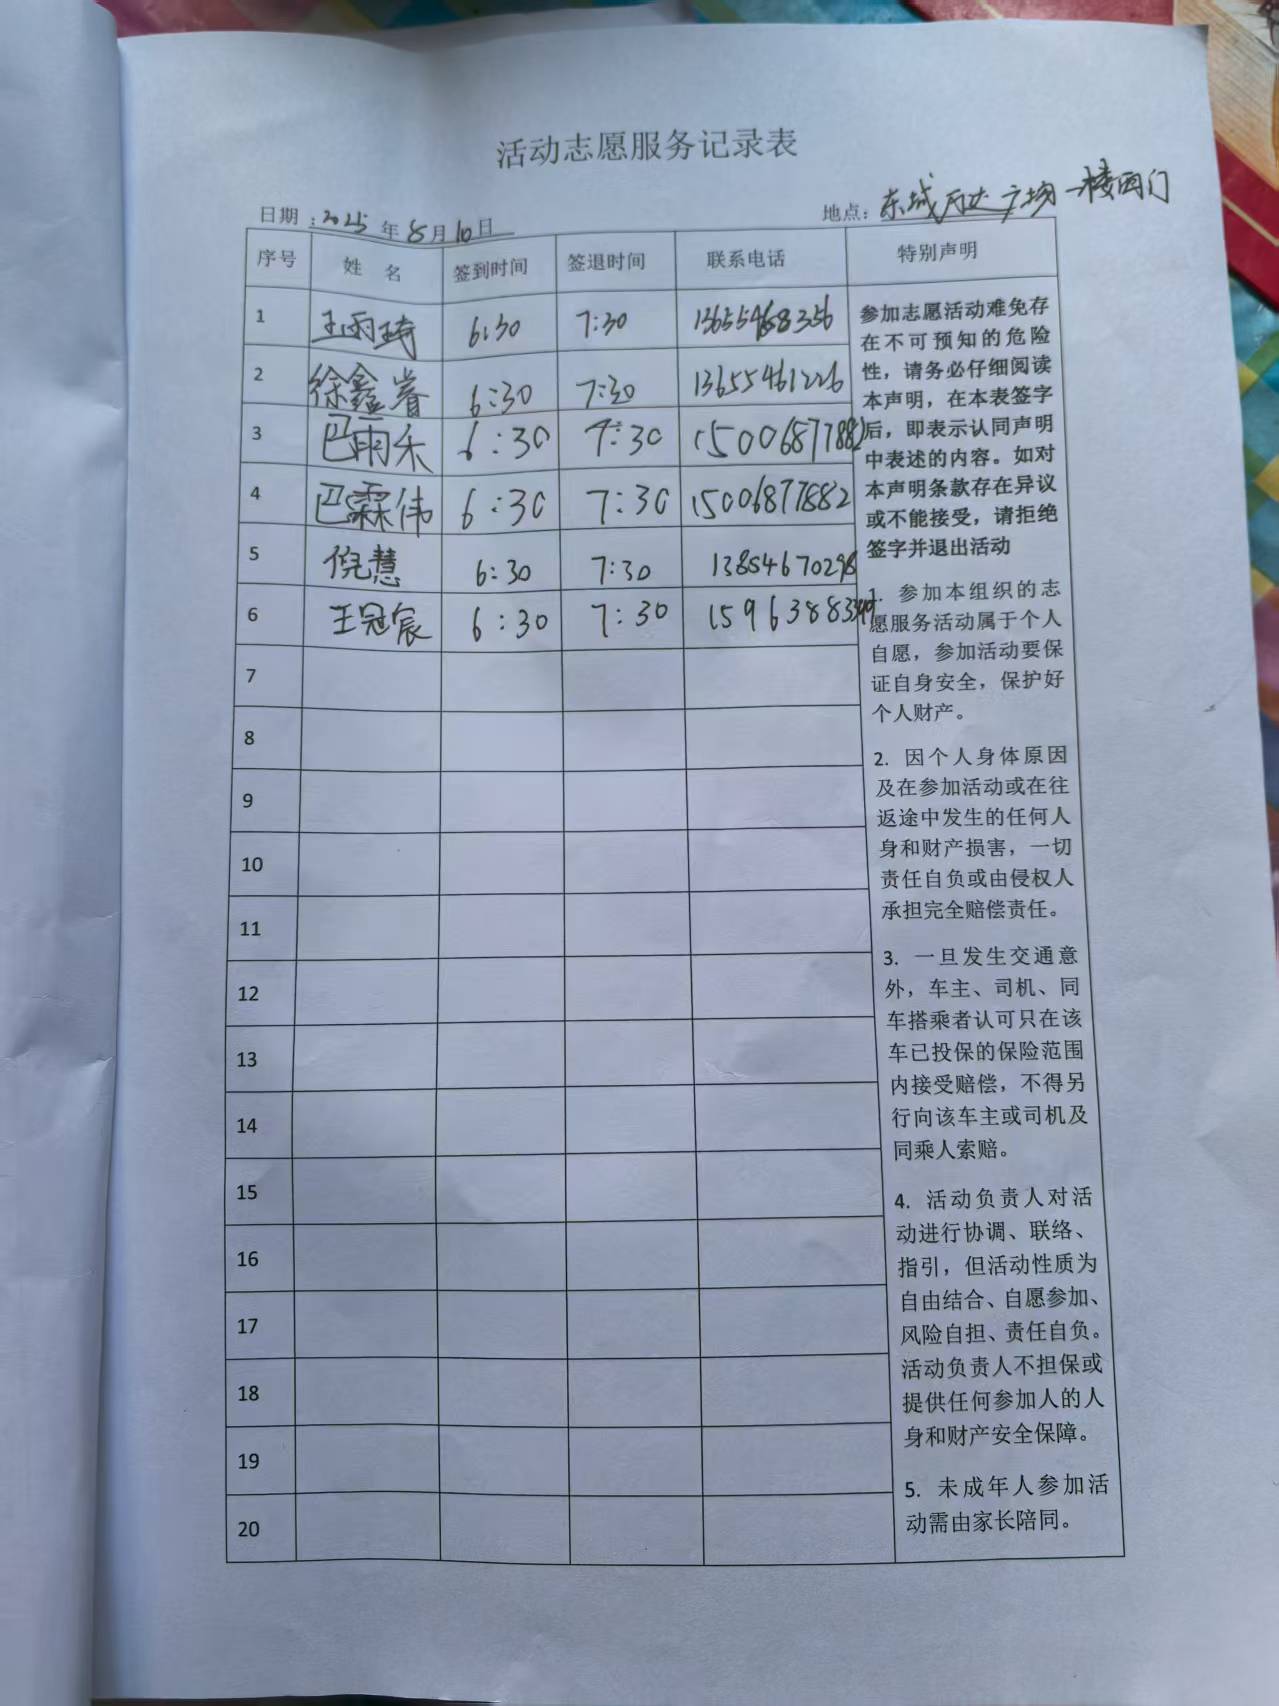 活动志愿服务记录表
日期：2025年8月10日 地点：东城万达广场一楼西门
序号 姓名 签到时间 签退时间 联系电话 特别声明
1 王雨琦 6:30 7:30 13655468356
2 徐鑫睿 6:30 7:30 13655461226
3 巴雨禾 6:30 7:30 15006877882
4 巴霖伟 6:30 7:30 15006877882
5 倪慧 6:30 7:30 13854670298
6 王冠宸 6:30 7:30
7
8
9
10
11
12
13
14
15
16
17
18
19
20
参加志愿活动难免存
在不可预知的危险
性，请务必仔细阅读
本声明，在本表签字
后，即表示认同声明
中表述的内容。如对
本声明条款存在异议
或不能接受，请拒绝
签字并退出活动
1. 参加本组织的志
愿服务活动属于个人
自愿，参加活动要保
证自身安全，保护好
个人财产。
2. 因个人身体原因
及在参加活动或在往
返途中发生的任何人
身和财产损害，一切
责任自负或由侵权人
承担完全赔偿责任。
3. 一旦发生交通意
外，车主、司机、同
车搭乘者认可只在该
车已投保的保险范围
内接受赔偿，不得另
行向该车主或司机及
同乘人索赔。
4. 活动负责人对活
动进行协调、联络、
指引，但活动性质为
自由结合、自愿参加、
风险自担、责任自负。
活动负责人不担保或
提供任何参加人的人
身和财产安全保障。
5. 未成年人参加活
动需由家长陪同。